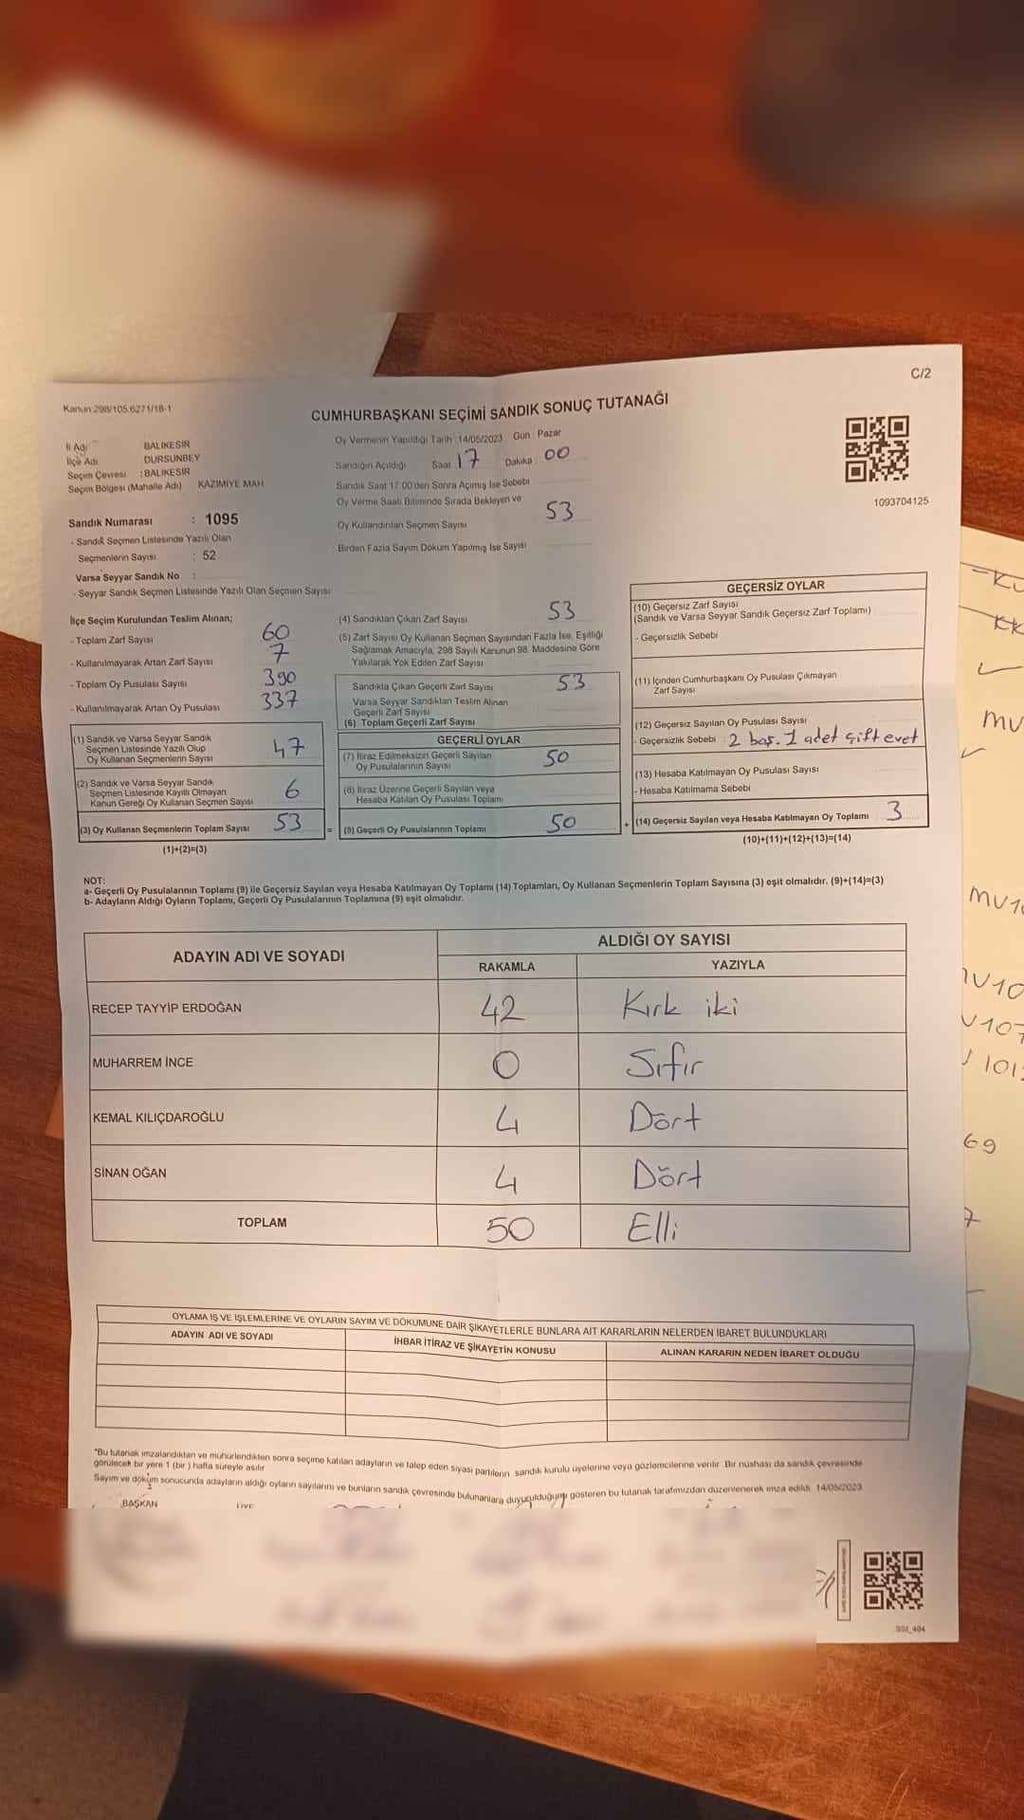 C/2
Kanun:298/105,6271/18-1
CUMHURBAŞKANI SEÇİMİ SANDIK SONUÇ TUTANAĞI
İl Adı BALIKESİR
İlçe Adı DURSUNBEY
Seçim Çevresi : BALIKESİR
Seçim Bölgesi (Mahalle Adı) KAZIMİYE MAH
Oy Vermenin Yapıldığı Tarih :14/05/2023 Gün Pazar
Sandığın Açıldığı Saat 17 Dakika 00
Sandık Saat 17:00'den Sonra Açımış İse Sebebi
Oy Verme Saati Bitiminde Sırada Bekleyen ve
Oy Kullandırılan Seçmen Sayısı 53
Birden Fazla Sayım Döküm Yapılmış İse Sayısı
1093704125
Sandık Numarası : 1095
- Sandık Seçmen Listesinde Yazılı Olan
Seçmenlerin Sayısı : 52
Varsa Seyyar Sandık No :
- Seyyar Sandık Seçmen Listesinde Yazılı Olan Seçmen Sayısı
İlçe Seçim Kurulundan Teslim Alınan;
- Toplam Zarf Sayısı 60
- Kullanılmayarak Artan Zarf Sayısı 7
- Toplam Oy Pusulası Sayısı 390
- Kullanılmayarak Artan Oy Pusulası 337
(1) Sandık ve Varsa Seyyar Sandık
Seçmen Listesinde Yazılı Olup
Oy Kullanan Seçmenlerin Sayısı 47
(2) Sandık ve Varsa Seyyar Sandık
Seçmen Listesinde Kayıtlı Olmayan
Kanun Gereği Oy Kullanan Seçmen Sayısı 6
(3) Oy Kullanan Seçmenlerin Toplam Sayısı 53
(1)+(2)=(3)
(4) Sandıktan Çıkan Zarf Sayısı 53
(5) Zarf Sayısı Oy Kullanan Seçmen Sayısından Fazla İse, Eşitliği
Sağlamak Amacıyla, 298 Sayılı Kanunun 98. Maddesine Göre
Yakılarak Yok Edilen Zarf Sayısı
Sandıkta Çıkan Geçerli Zarf Sayısı 53
Varsa Seyyar Sandıktan Teslim Alınan
Geçerli Zarf Sayısı
(6) Toplam Geçerli Zarf Sayısı
GEÇERLİ OYLAR
(7) İtiraz Edilmeksizin Geçerli Sayılan
Oy Pusulalarının Sayısı 50
(8) İtiraz Üzerine Geçerli Sayılan veya
Hesaba Katılan Oy Pusulası Toplamı
= (9) Geçerli Oy Pusulalarının Toplamı 50
GEÇERSİZ OYLAR
(10) Geçersiz Zarf Sayısı
(Sandık ve Varsa Seyyar Sandık Geçersiz Zarf Toplamı)
- Geçersizlik Sebebi
(11) İçinden Cumhurbaşkanı Oy Pusulası Çıkmayan
Zarf Sayısı
(12) Geçersiz Sayılan Oy Pusulası Sayısı
- Geçersizlik Sebebi 2 boş. 1 adet çift evet
(13) Hesaba Katılmayan Oy Pusulası Sayısı
- Hesaba Katılmama Sebebi
+ (14) Geçersiz Sayılan veya Hesaba Katılmayan Oy Toplamı 3
(10)+(11)+(12)+(13)=(14)
NOT:
a- Geçerli Oy Pusulalarının Toplamı (9) ile Geçersiz Sayılan veya Hesaba Katılmayan Oy Toplamı (14) Toplamları, Oy Kullanan Seçmenlerin Toplam Sayısına (3) eşit olmalıdır. (9)+(14)=(3)
b- Adayların Aldığı Oyların Toplamı, Geçerli Oy Pusulalarının Toplamına (9) eşit olmalıdır.
ADAYIN ADI VE SOYADI
ALDIĞI OY SAYISI
RAKAMLA YAZIYLA
RECEP TAYYİP ERDOĞAN 42 Kırk iki
MUHARREM İNCE 0 Sıfır
KEMAL KILIÇDAROĞLU 4 Dört
SİNAN OĞAN 4 Dört
TOPLAM 50 Elli
OYLAMA İŞ VE İŞLEMLERİNE VE OYLARIN SAYIM VE DÖKÜMÜNE DAİR ŞİKAYETLERLE BUNLARA AİT KARARLARIN NELERDEN İBARET BULUNDUKLARI
ADAYIN ADI VE SOYADI İHBAR İTİRAZ VE ŞİKAYETİN KONUSU ALINAN KARARIN NEDEN İBARET OLDUĞU
"Bu tutanak imzalandıktan ve mühürlendikten sonra seçime katılan adayların ve talep eden siyasi partilerin sandık kurulu üyelerine veya gözlemcilerine verilir. Bir nüshası da sandık çevresinde
görülecek bir yere 1 (bir ) hafta süreyle asılır
Sayım ve döküm sonucunda adayların aldığı oyların sayılarını ve bunların sandık çevresinde bulunanlara duyurulduğunu gösteren bu tutanak tarafımızdan düzenlenerek imza edildi. 14/05/2023
BAŞKAN
MV
MV10
69
7